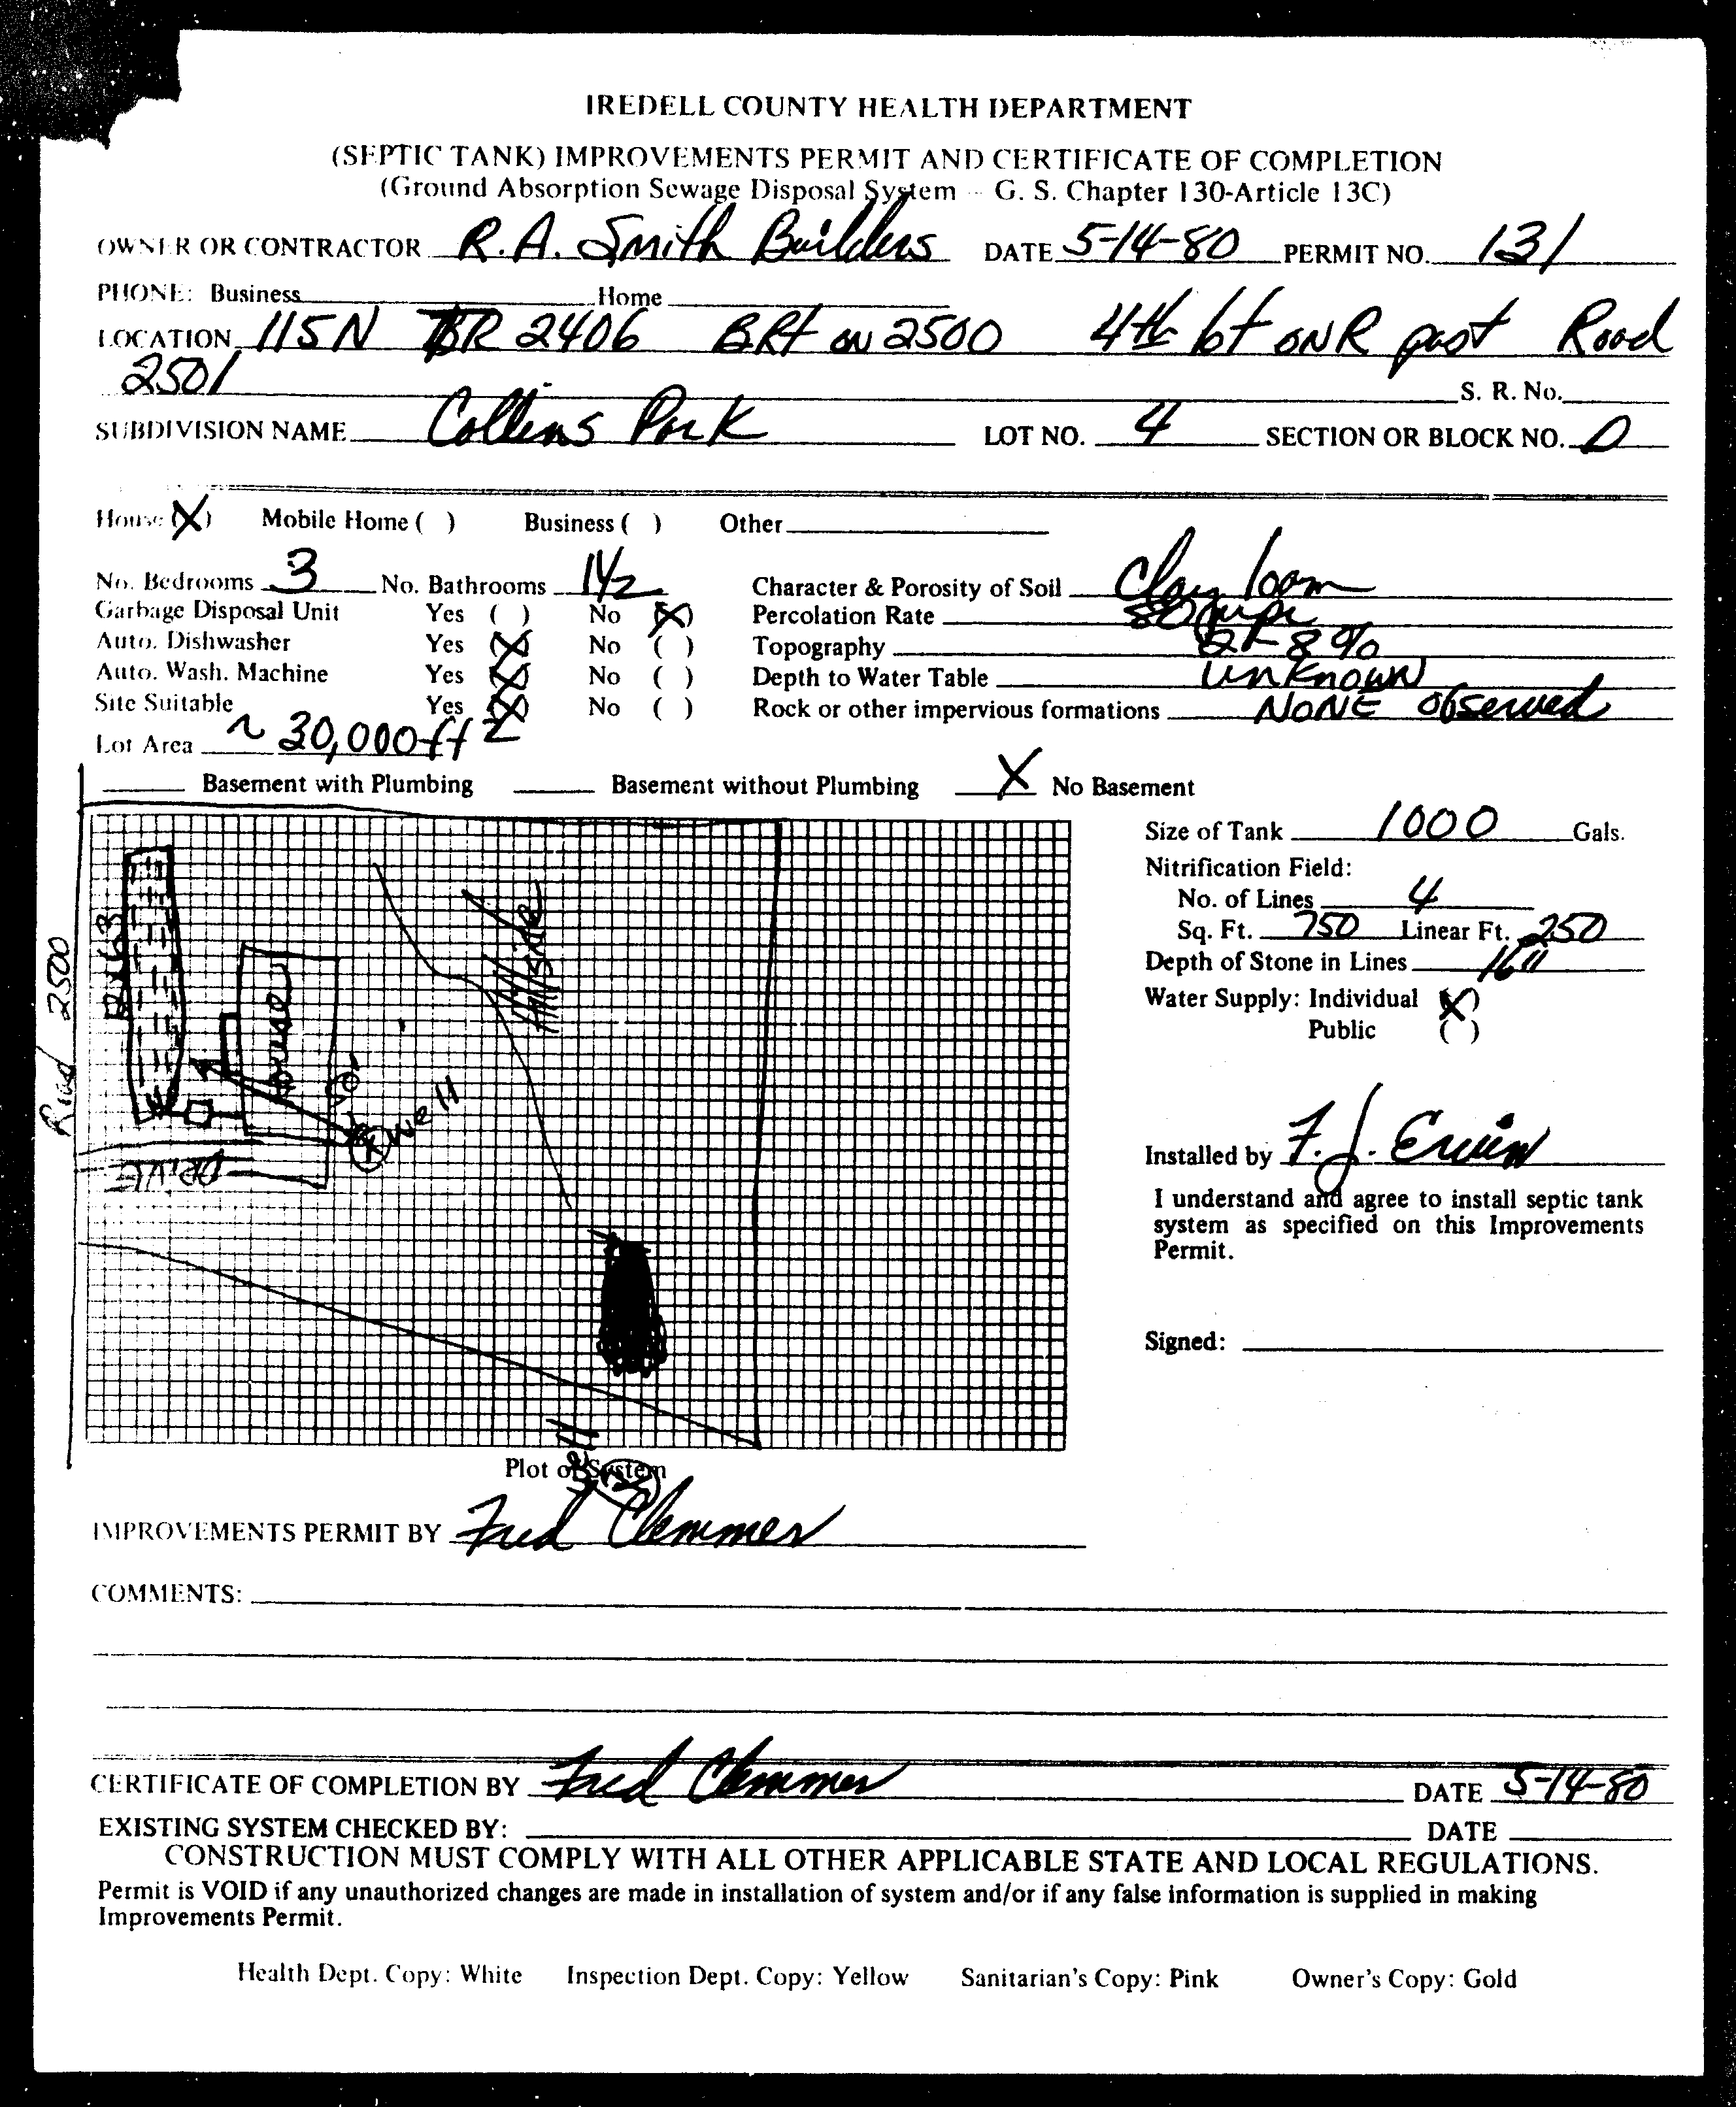 IREDELL COUNTY HEALTH DEPARTMENT
(SEPTIC TANK) IMPROVEMENTS PERMIT AND CERTIFICATE OF COMPLETION
(Ground Absorption Sewage Disposal System - G. S. Chapter 130-Article 13C)
OWNER OR CONTRACTOR R.A. Smith Builders DATE 5-14-80 PERMIT NO. 131
PHONE: Business Home
LOCATION 115N BR 2406 BRt on 2500 4th lot on R past Road
2501
S. R. No.
SUBDIVISION NAME Collins Park LOT NO. 4 SECTION OR BLOCK NO. D
House (X) Mobile Home ( ) Business ( ) Other
No. Bedrooms 3 No. Bathrooms 1 1/2 Character & Porosity of Soil Clay loam
Garbage Disposal Unit Yes ( ) No (X) Percolation Rate 80 mpi
Auto. Dishwasher Yes (X) No ( ) Topography 8%
Auto. Wash. Machine Yes (X) No ( ) Depth to Water Table unknown
Site Suitable Yes (X) No ( ) Rock or other impervious formations NONE observed
Lot Area ~ 30,000 ft2
Basement with Plumbing Basement without Plumbing X No Basement
Size of Tank 1000 Gals.
Nitrification Field:
No. of Lines 4
Sq. Ft. 750 Linear Ft. 250
Depth of Stone in Lines 16"
Water Supply: Individual (X)
Public ( )
Road 2500
House
Hillside
well
DRIVE
Installed by F. J. Erwin
I understand and agree to install septic tank
system as specified on this Improvements
Permit.
Signed:
well
Plot of System
IMPROVEMENTS PERMIT BY Fred Clemmer
COMMENTS:
CERTIFICATE OF COMPLETION BY Fred Clemmer DATE 5-14-80
EXISTING SYSTEM CHECKED BY: DATE
CONSTRUCTION MUST COMPLY WITH ALL OTHER APPLICABLE STATE AND LOCAL REGULATIONS.
Permit is VOID if any unauthorized changes are made in installation of system and/or if any false information is supplied in making
Improvements Permit.
Health Dept. Copy: White Inspection Dept. Copy: Yellow Sanitarian's Copy: Pink Owner's Copy: Gold